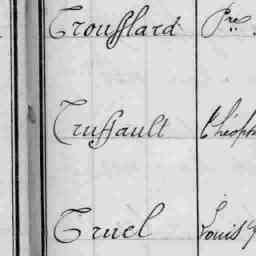 Troufflard Pre
Truffault Théoph
Truel Louis